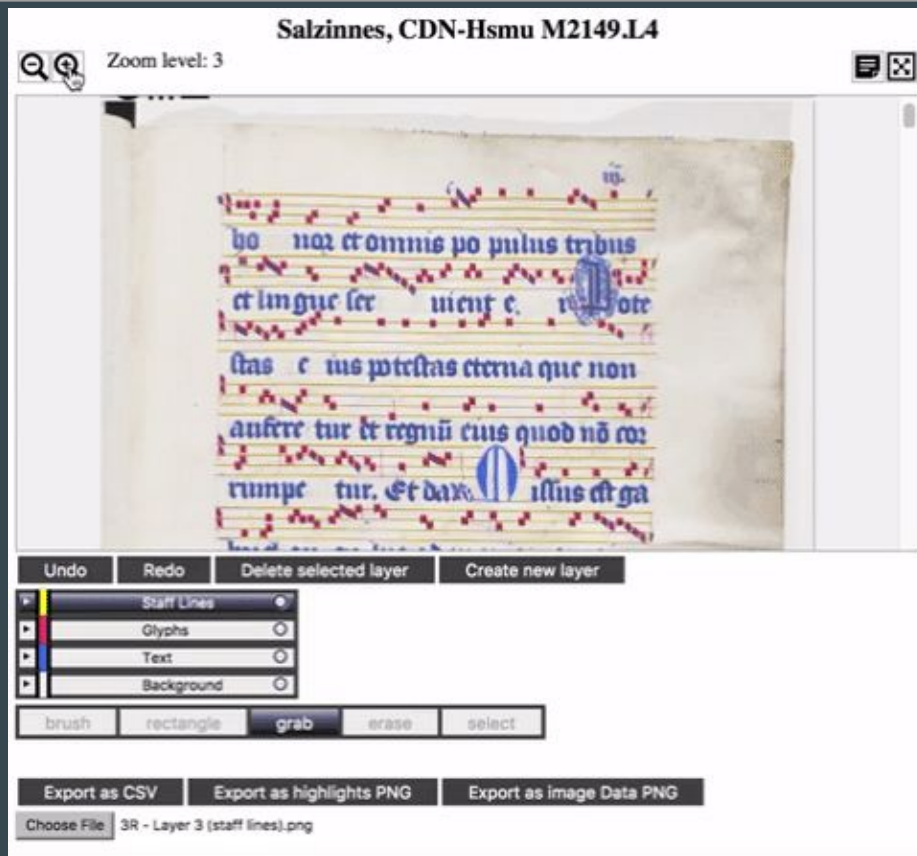 Salzinnes, CDN-Hsmu M2149.L4
Zoom level: 3
ho nor et omnis po pulus tribus
et lingue ser uient e. i ote
stas e ius potestas eterna que non
aufere tur et regnū eius quod nō cor
rumpe tur. Et da issus est ga
Undo Redo Delete selected layer Create new layer
Staff Lines
Glyphs
Text
Background
brush rectangle grab erase select
Export as CSV Export as highlights PNG Export as image Data PNG
Choose File 3R - Layer 3 (staff lines).png